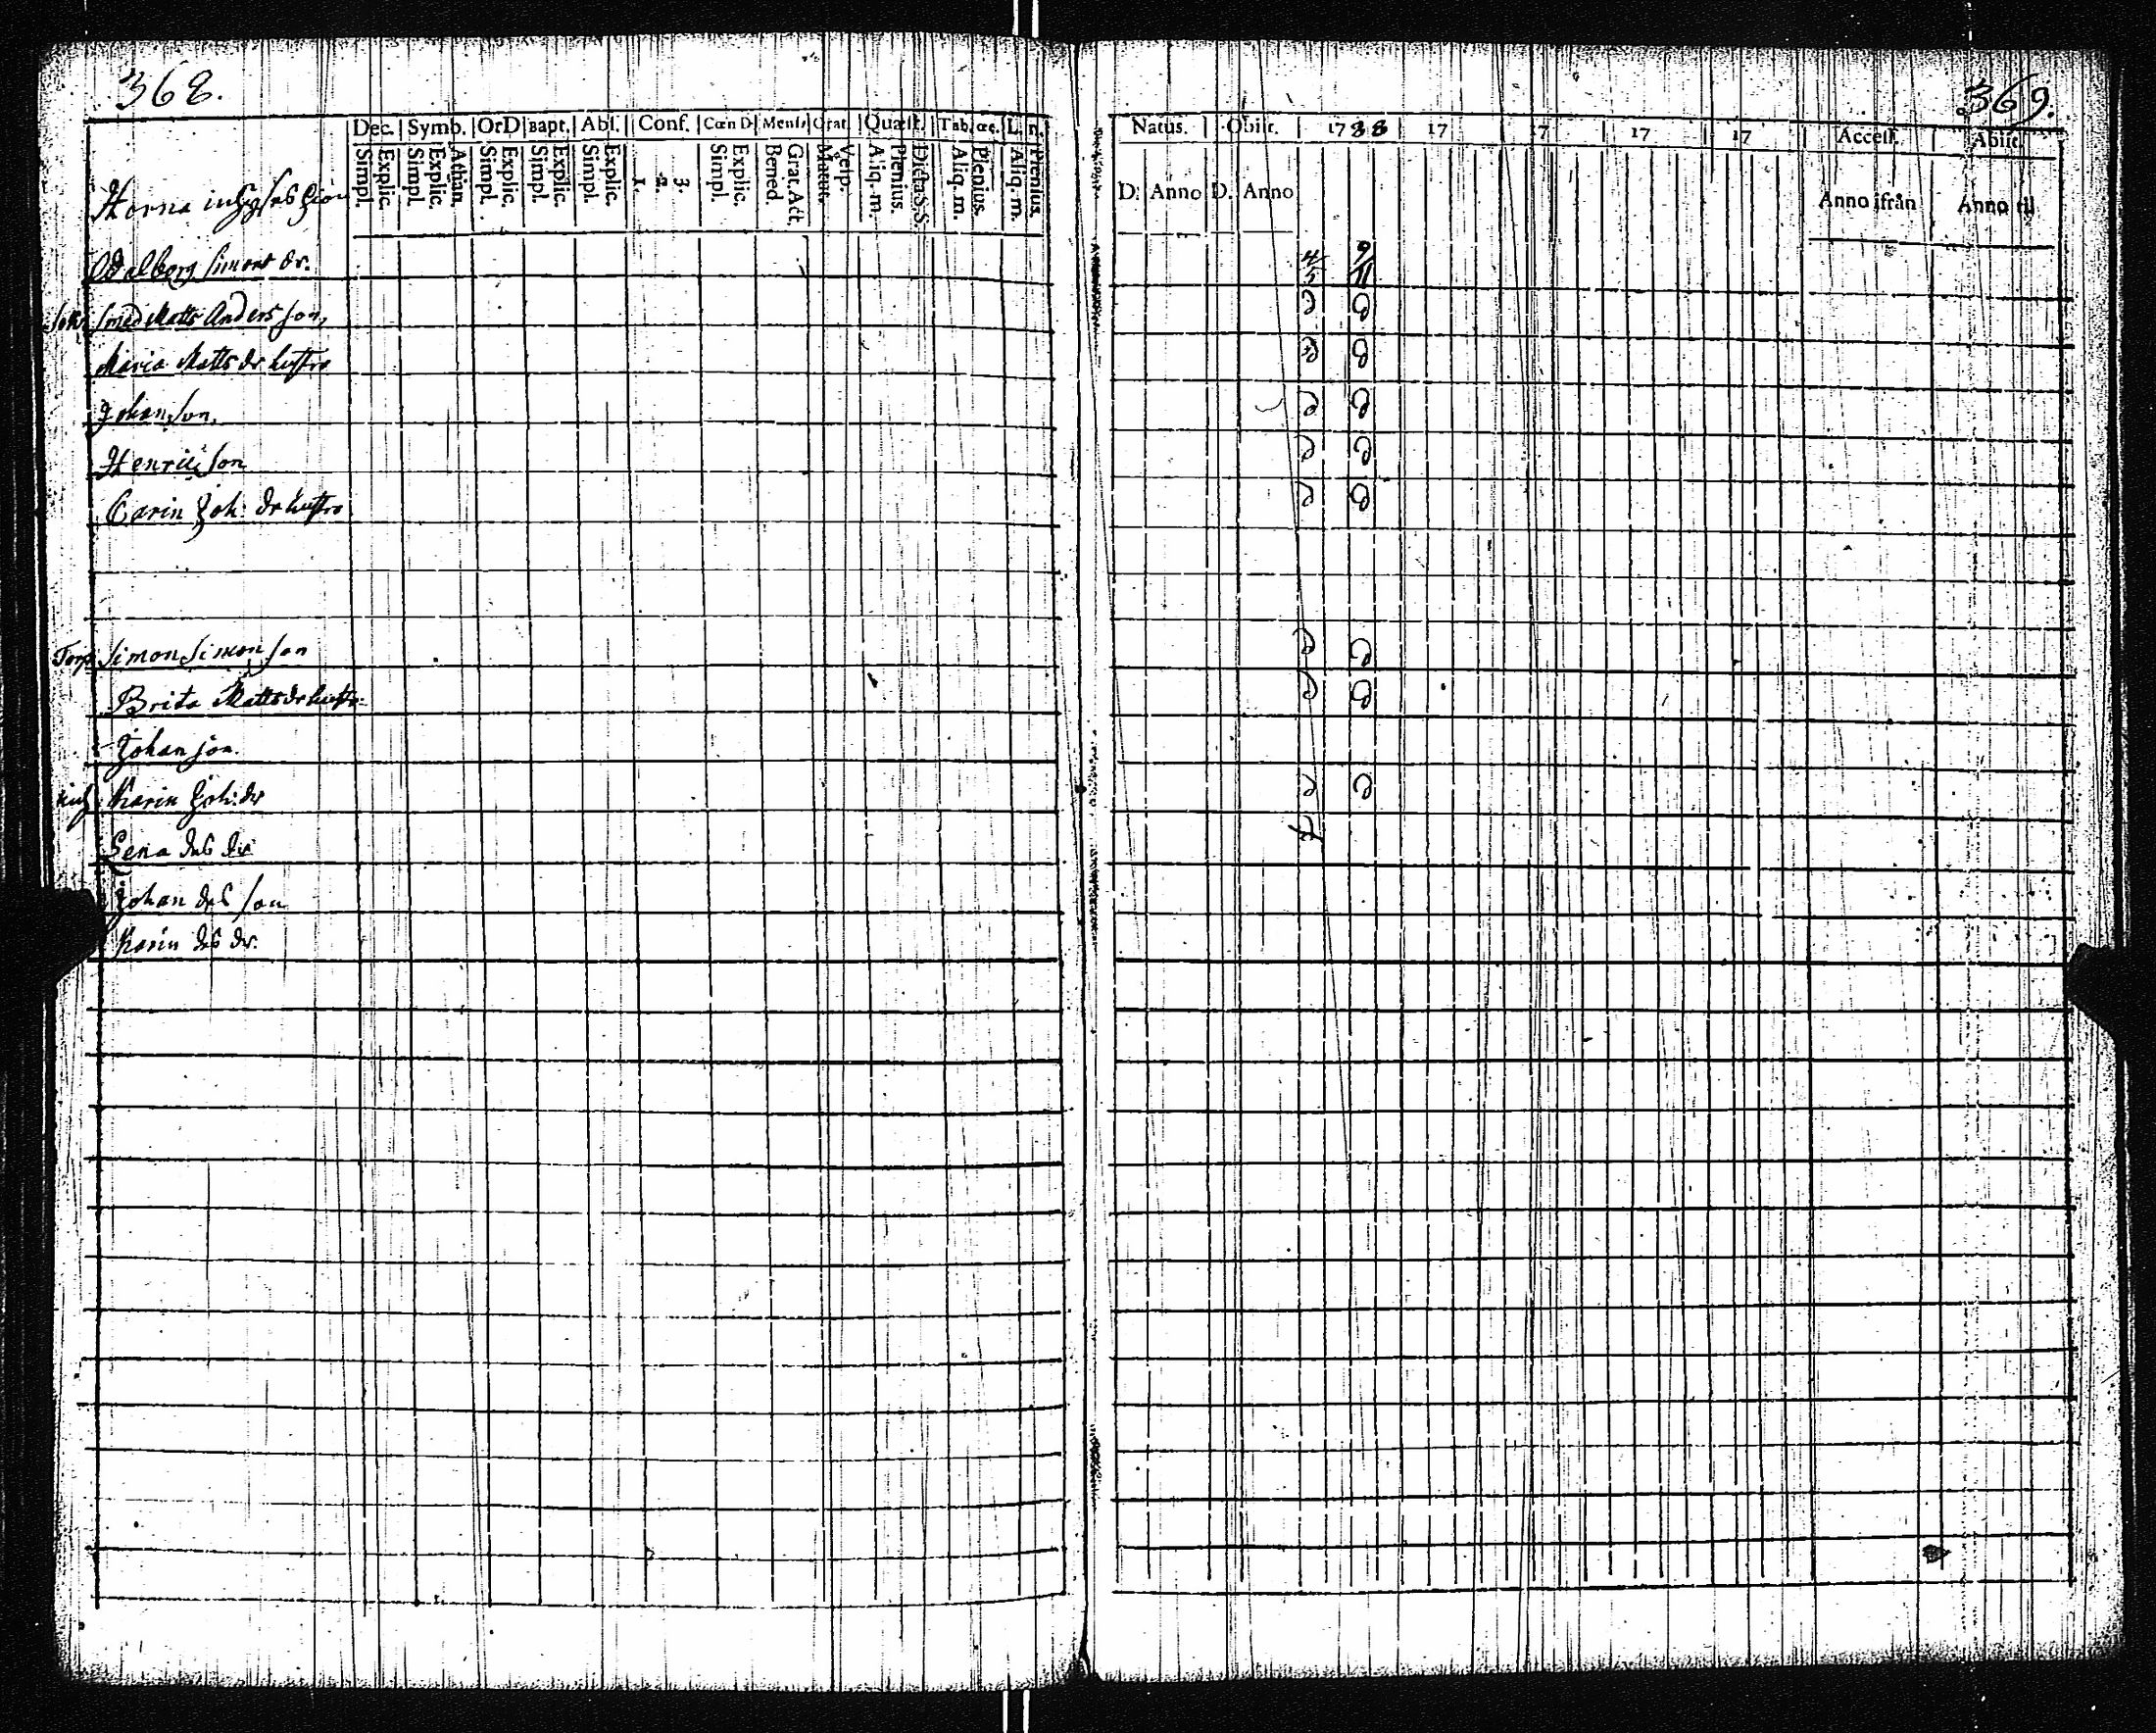 368.
369.
Dec. Symb. OrD Bapt. Abs. Conf. Cœn D Mensæ Orat. Quæst. Tab. œc. L. n.
Natus. Obiit. 1788 17 17 17 17 Access. Abiit.
Simpl. Explic. Simpl. Explic. Athan. Simpl. Explic. Simpl. Explic. Simpl. Explic. 1. 2. 3. Simpl. Explic. Bened. Grat. Act. Matut. Vesp. Aliq. m. Plenius. Dicta S.S. Aliq. m. Plenius. Aliq. m. Plenius.
D. Anno D. Anno Anno ifrån Anno til
Horna
Walborg Simons dr. 4/5 9/11
Smed Matts Anders son
Maria Matts dr hustro
Johan son
Henric son
Carin Joh: dr hustro
Torp Simon Simon son
Brita Matts dr hustr:
Johan son
Karin Joh: dr
Lena ds dr
Johan ds son
Karin ds dr.